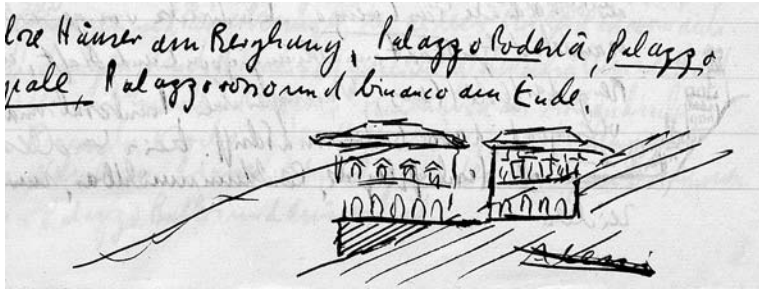 lose Häuser am Berghang, Palazzo Podestà, Palazzo
pale, Palazzo rosso und bianco am Ende.
Alessi